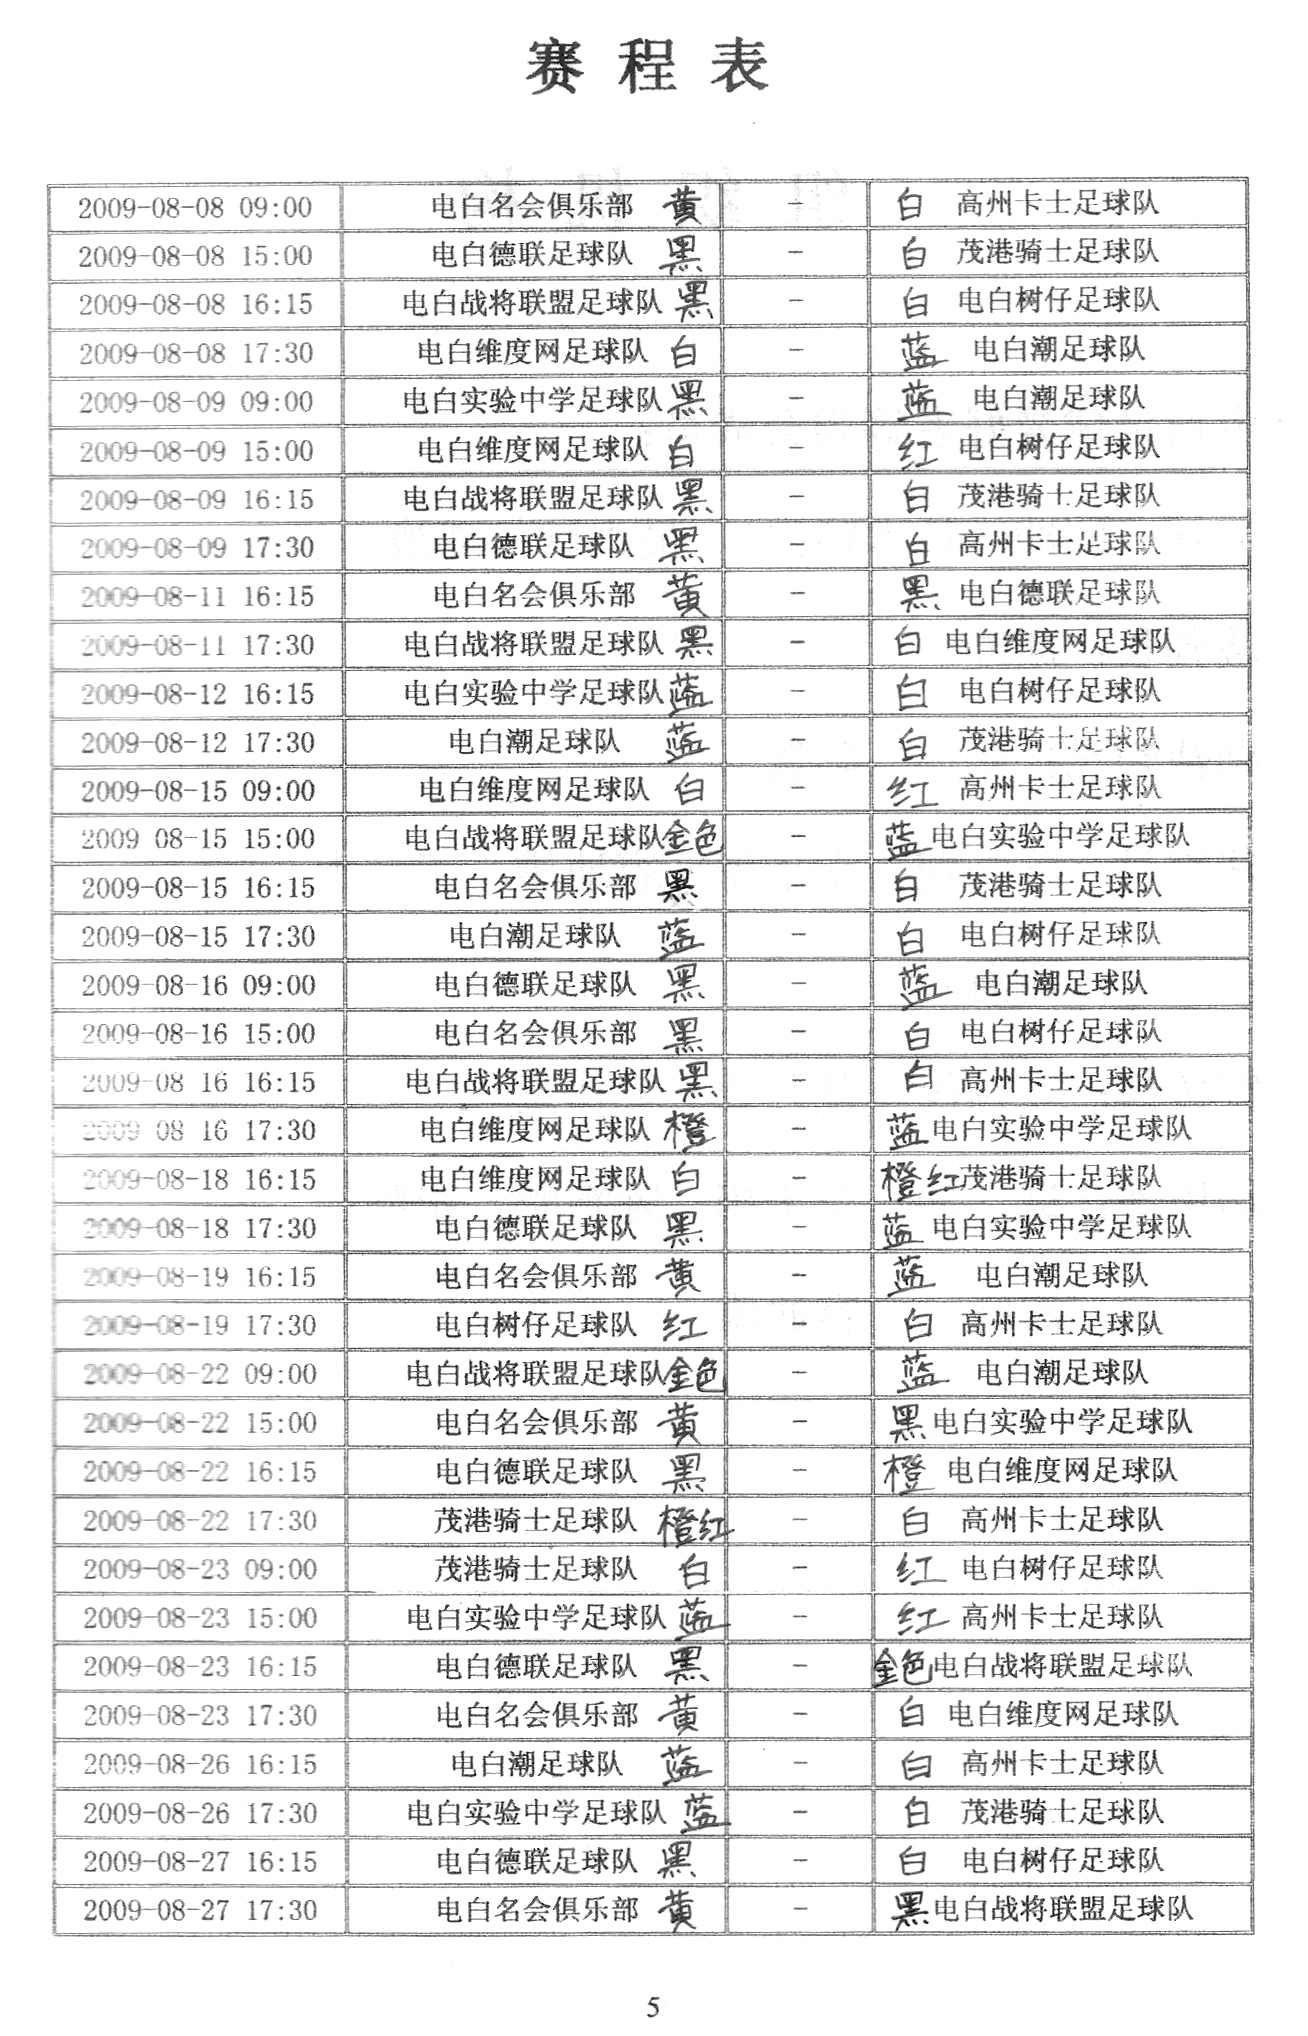 赛程表
2009-08-08 09:00 电白名会俱乐部 黄 - 白 高州卡士足球队
2009-08-08 15:00 电白德联足球队 黑 - 白 茂港骑士足球队
2009-08-08 16:15 电白战将联盟足球队 黑 - 白 电白树仔足球队
2009-08-08 17:30 电白维度网足球队 白 - 蓝 电白潮足球队
2009-08-09 09:00 电白实验中学足球队 黑 - 蓝 电白潮足球队
2009-08-09 15:00 电白维度网足球队 白 - 红 电白树仔足球队
2009-08-09 16:15 电白战将联盟足球队 黑 - 白 茂港骑士足球队
2009-08-09 17:30 电白德联足球队 黑 - 白 高州卡士足球队
2009-08-11 16:15 电白名会俱乐部 黄 - 黑 电白德联足球队
2009-08-11 17:30 电白战将联盟足球队 黑 - 白 电白维度网足球队
2009-08-12 16:15 电白实验中学足球队 蓝 - 白 电白树仔足球队
2009-08-12 17:30 电白潮足球队 蓝 - 白 茂港骑士足球队
2009-08-15 09:00 电白维度网足球队 白 - 红 高州卡士足球队
2009 08-15 15:00 电白战将联盟足球队 金色 - 蓝 电白实验中学足球队
2009-08-15 16:15 电白名会俱乐部 黑 - 白 茂港骑士足球队
2009-08-15 17:30 电白潮足球队 蓝 - 白 电白树仔足球队
2009-08-16 09:00 电白德联足球队 黑 - 蓝 电白潮足球队
2009-08-16 15:00 电白名会俱乐部 黑 - 白 电白树仔足球队
2009-08 16 16:15 电白战将联盟足球队 黑 - 白 高州卡士足球队
2009 08 16 17:30 电白维度网足球队 橙 - 蓝 电白实验中学足球队
2009-08-18 16:15 电白维度网足球队 白 - 橙红 茂港骑士足球队
2009-08-18 17:30 电白德联足球队 黑 - 蓝 电白实验中学足球队
2009-08-19 16:15 电白名会俱乐部 黄 - 蓝 电白潮足球队
2009-08-19 17:30 电白树仔足球队 红 - 白 高州卡士足球队
2009-08-22 09:00 电白战将联盟足球队 金色 - 蓝 电白潮足球队
2009-08-22 15:00 电白名会俱乐部 黄 - 黑 电白实验中学足球队
2009-08-22 16:15 电白德联足球队 黑 - 橙 电白维度网足球队
2009-08-22 17:30 茂港骑士足球队 橙红 - 白 高州卡士足球队
2009-08-23 09:00 茂港骑士足球队 白 - 红 电白树仔足球队
2009-08-23 15:00 电白实验中学足球队 蓝 - 红 高州卡士足球队
2009-08-23 16:15 电白德联足球队 黑 - 金色 电白战将联盟足球队
2009-08-23 17:30 电白名会俱乐部 黄 - 白 电白维度网足球队
2009-08-26 16:15 电白潮足球队 蓝 - 白 高州卡士足球队
2009-08-26 17:30 电白实验中学足球队 蓝 - 白 茂港骑士足球队
2009-08-27 16:15 电白德联足球队 黑 - 白 电白树仔足球队
2009-08-27 17:30 电白名会俱乐部 黄 - 黑 电白战将联盟足球队
5